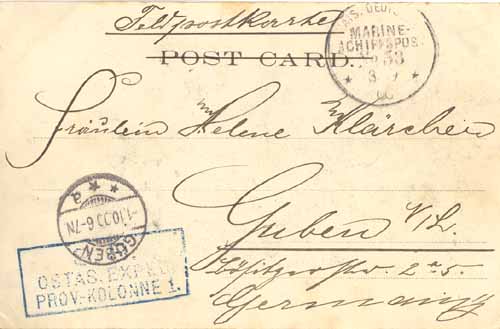 Feldpostkarte
POST CARD.
KAIS. DEUTSCHE
MARINE-
SCHIFFSPOST
No 53
Fräulein Helene Klärchen
Guben N/L.
2 a. 5.
Germany
GUBEN
-1.10.00.6-7N
* * a
OSTAS. EXPED.
PROV.-KOLONNE 1.